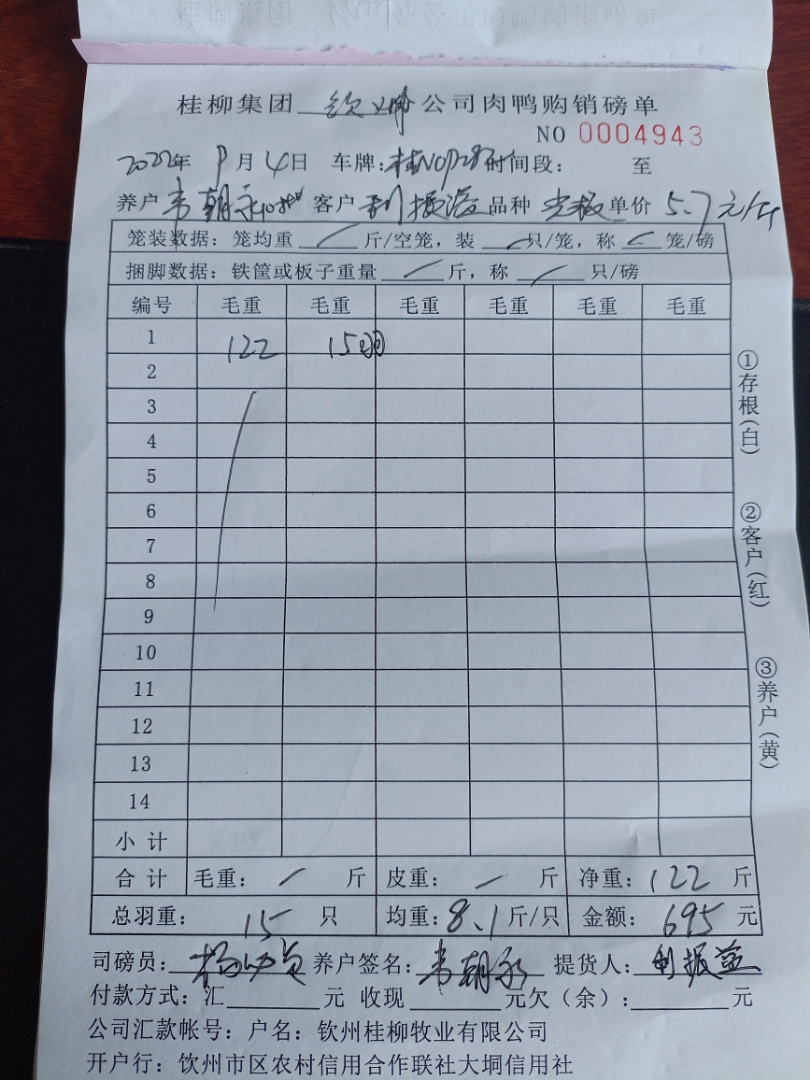 桂柳集团 公司肉鸭购销磅单
NO 0004943
2022年 9月4日 车牌: 时间段: 至
养户 韦朝永 客户 利振益 品种 单价 5.7元/斤
笼装数据: 笼均重 斤/空笼, 装 只/笼, 称 笼/磅
捆脚数据: 铁筐或板子重量 斤, 称 只/磅
编号 毛重 毛重 毛重 毛重 毛重 毛重
1 122 15羽
2
3
4
5
6
7
8
9
10
11
12
13
14
小计
合计 毛重: 斤 皮重: 斤 净重: 122 斤
总羽重: 15 只 均重: 8.1 斤/只 金额: 695 元
司磅员: 养户签名: 韦朝永 提货人: 利振益
付款方式: 汇 元 收现 元欠(余): 元
公司汇款帐号: 户名: 钦州桂柳牧业有限公司
开户行: 钦州市区农村信用合作联社大垌信用社
①存根(白)
②客户(红)
③养户(黄)